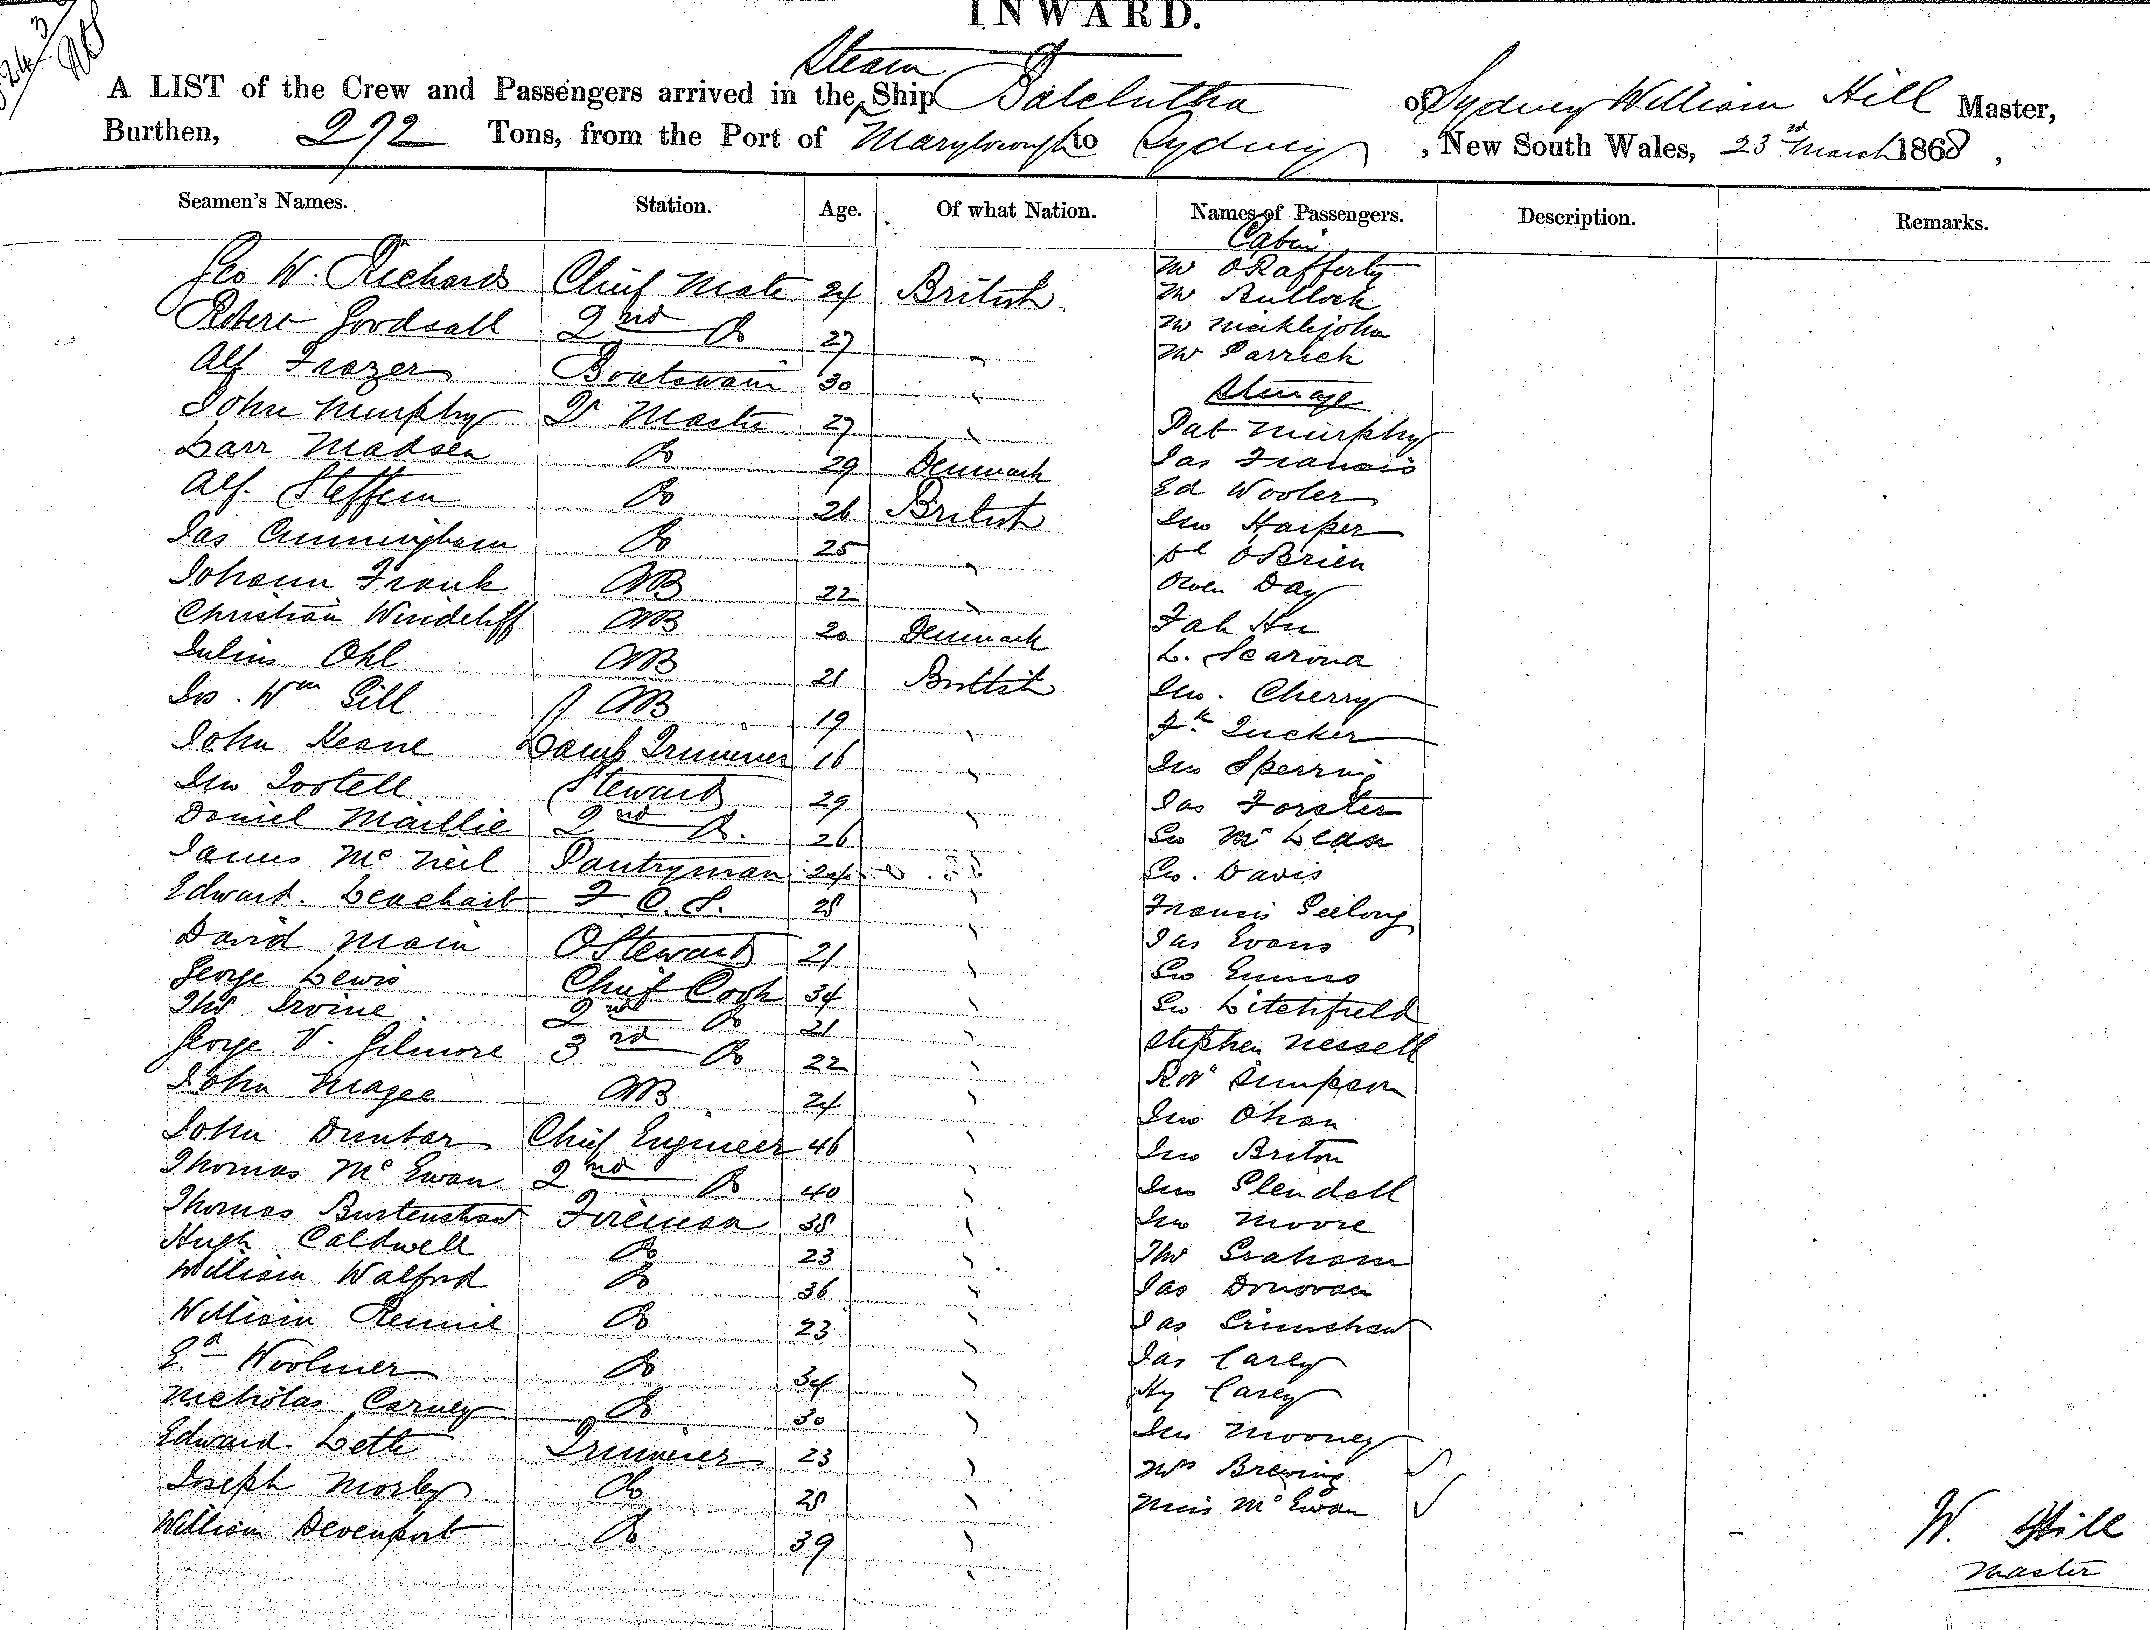 INWARD.
A LIST of the Crew and Passengers arrived in the Steam Ship Balclutha of Sydney William Hill Master,
Burthen, 272 Tons, from the Port of Maryborough to Sydney, New South Wales, 23rd March 1868,
Seamen's Names. Station. Age. Of what Nation. Names of Passengers. Description. Remarks.
Cabin
Geo W. Richards Chief Mate 24 British Mr O'Rafferty
Mr Bullock
Robert Goodsall 2nd Do 27 " Mr Micklejohn
Alf Frazer Boatswain 30 " Mr Parrick
Steerage
John Murphy Qr Master 27 " Pat Murphy
Larr Madsen Do 29 Denmark Jas Francis
Alf. Steffern Do 26 British Ed Wooler
Jas Cunningham Do 25 " Jno Harper
O'Brien
Johann Frank AB 22 " Owen Day
Christian Windcliff AB 20 Denmark Fah Hu
Julius Ohl AB 21 British L. Scarona
Jas. Wm Gill AB 19 " Jno. Cherry
John Keane Lamp Trimmer 16 " Fk Tucker
Jno Tootell Steward 29 " Jno Sperring
Daniel Maillie 2nd Do. 26 " Jas Forster
James McNeil Pantryman 24 Geo McLean
Edward. F. C. S. 28 " Geo. Davis
David Main O Steward 21 " Francis Geelong
George Lewis Chief Cook 34 " Jas Evans
Thos Irvine 2nd Do 21 " Geo
George V. Gilmore 3rd Do 22 " Geo Litchfield
John Magee AB 24 " Stephen Nessell
John Dunbar Chief Engineer 46 " Robt Simpson
Thomas McEwan 2nd Do 40 " Jno Ohan
Thomas Burtenshaw Fireman 38 " Jno Briton
Hugh Caldwell Do 23 " Jno Glendall
William Walford Do 36 " Jno Moore
William Rennie Do 23 " Thos Graham
Woolmer Do 34 " Jas Donovan
Nicholas Carney Do 30 " Jas Grimshaw
Edward Lette Trimmer 23 " Jas Carey
Joseph Morley Do 28 " Hy Carey
William Devenport Do 39 " Jno Mooney
Mrs Brewing
Miss McEwan
W. Hill
Master